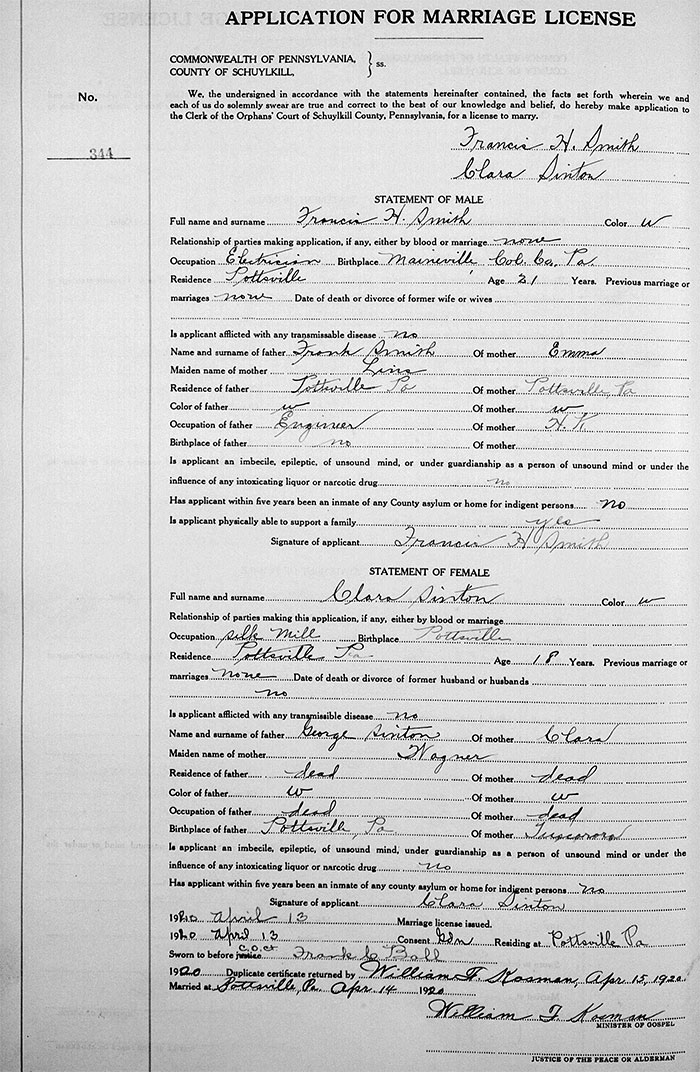 APPLICATION FOR MARRIAGE LICENSE
COMMONWEALTH OF PENNSYLVANIA,
COUNTY OF SCHUYLKILL, } ss.
No.
344
We, the undersigned in accordance with the statements hereinafter contained, the facts set forth wherein we and
each of us do solemnly swear are true and correct to the best of our knowledge and belief, do hereby make application to
the Clerk of the Orphans' Court of Schuylkill County, Pennsylvania, for a license to marry.
Francis H. Smith
Clara Sinton
STATEMENT OF MALE
Full name and surname Francis H. Smith Color w
Relationship of parties making application, if any, either by blood or marriage none
Occupation Electrician Birthplace Maineville Col. Co. Pa.
Residence Pottsville Age 21 Years. Previous marriage or
marriages none Date of death or divorce of former wife or wives
Is applicant afflicted with any transmissable disease no
Name and surname of father Frank Smith Of mother Emma
Maiden name of mother Lins
Residence of father Pottsville Pa Of mother Pottsville, Pa
Color of father w Of mother w
Occupation of father Engineer Of mother H. K.
Birthplace of father no Of mother
Is applicant an imbecile, epileptic, of unsound mind, or under guardianship as a person of unsound mind or under the
influence of any intoxicating liquor or narcotic drug no
Has applicant within five years been an inmate of any County asylum or home for indigent persons no
Is applicant physically able to support a family yes
Signature of applicant Francis H Smith
STATEMENT OF FEMALE
Full name and surname Clara Sinton Color w
Relationship of parties making this application, if any, either by blood or marriage
Occupation silk mill Birthplace Pottsville
Residence Pottsville Pa Age 18 Years. Previous marriage or
marriages none Date of death or divorce of former husband or husbands
no
Is applicant afflicted with any transmissible disease no
Name and surname of father George Sinton Of mother Clara
Maiden name of mother Wagner
Residence of father dead Of mother dead
Color of father w Of mother w
Occupation of father dead Of mother dead
Birthplace of father Pottsville, Pa Of mother Tuscarora
Is applicant an imbecile, epileptic, of unsound mind, under guardianship as a person of unsound mind or under the
influence of any intoxicating liquor or narcotic drug no
Has applicant within five years been an inmate of any county asylum or home for indigent persons no
Signature of applicant Clara Sinton
1920 April 13 Marriage license issued.
1920 April 13 Consent Gdn Residing at Pottsville Pa
Sworn to before justice C.O.Ct Frank C Ball
1920 Duplicate certificate returned by William F. Kosman, Apr. 15, 1920
Married at Pottsville, Pa Apr. 14 1920
William F Kosman
MINISTER OF GOSPEL
JUSTICE OF THE PEACE OR ALDERMAN